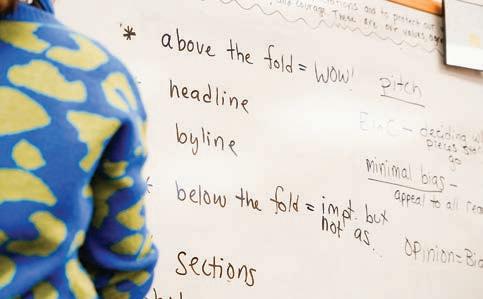 and courage. These are our values, agre
* above the fold = WOW!
headline
byline
below the fold = impt. but
not as..
sections
pitch
EinC – deciding wh
pieces
go
minimal bias –
appeal to all rea
Opinion = Bia